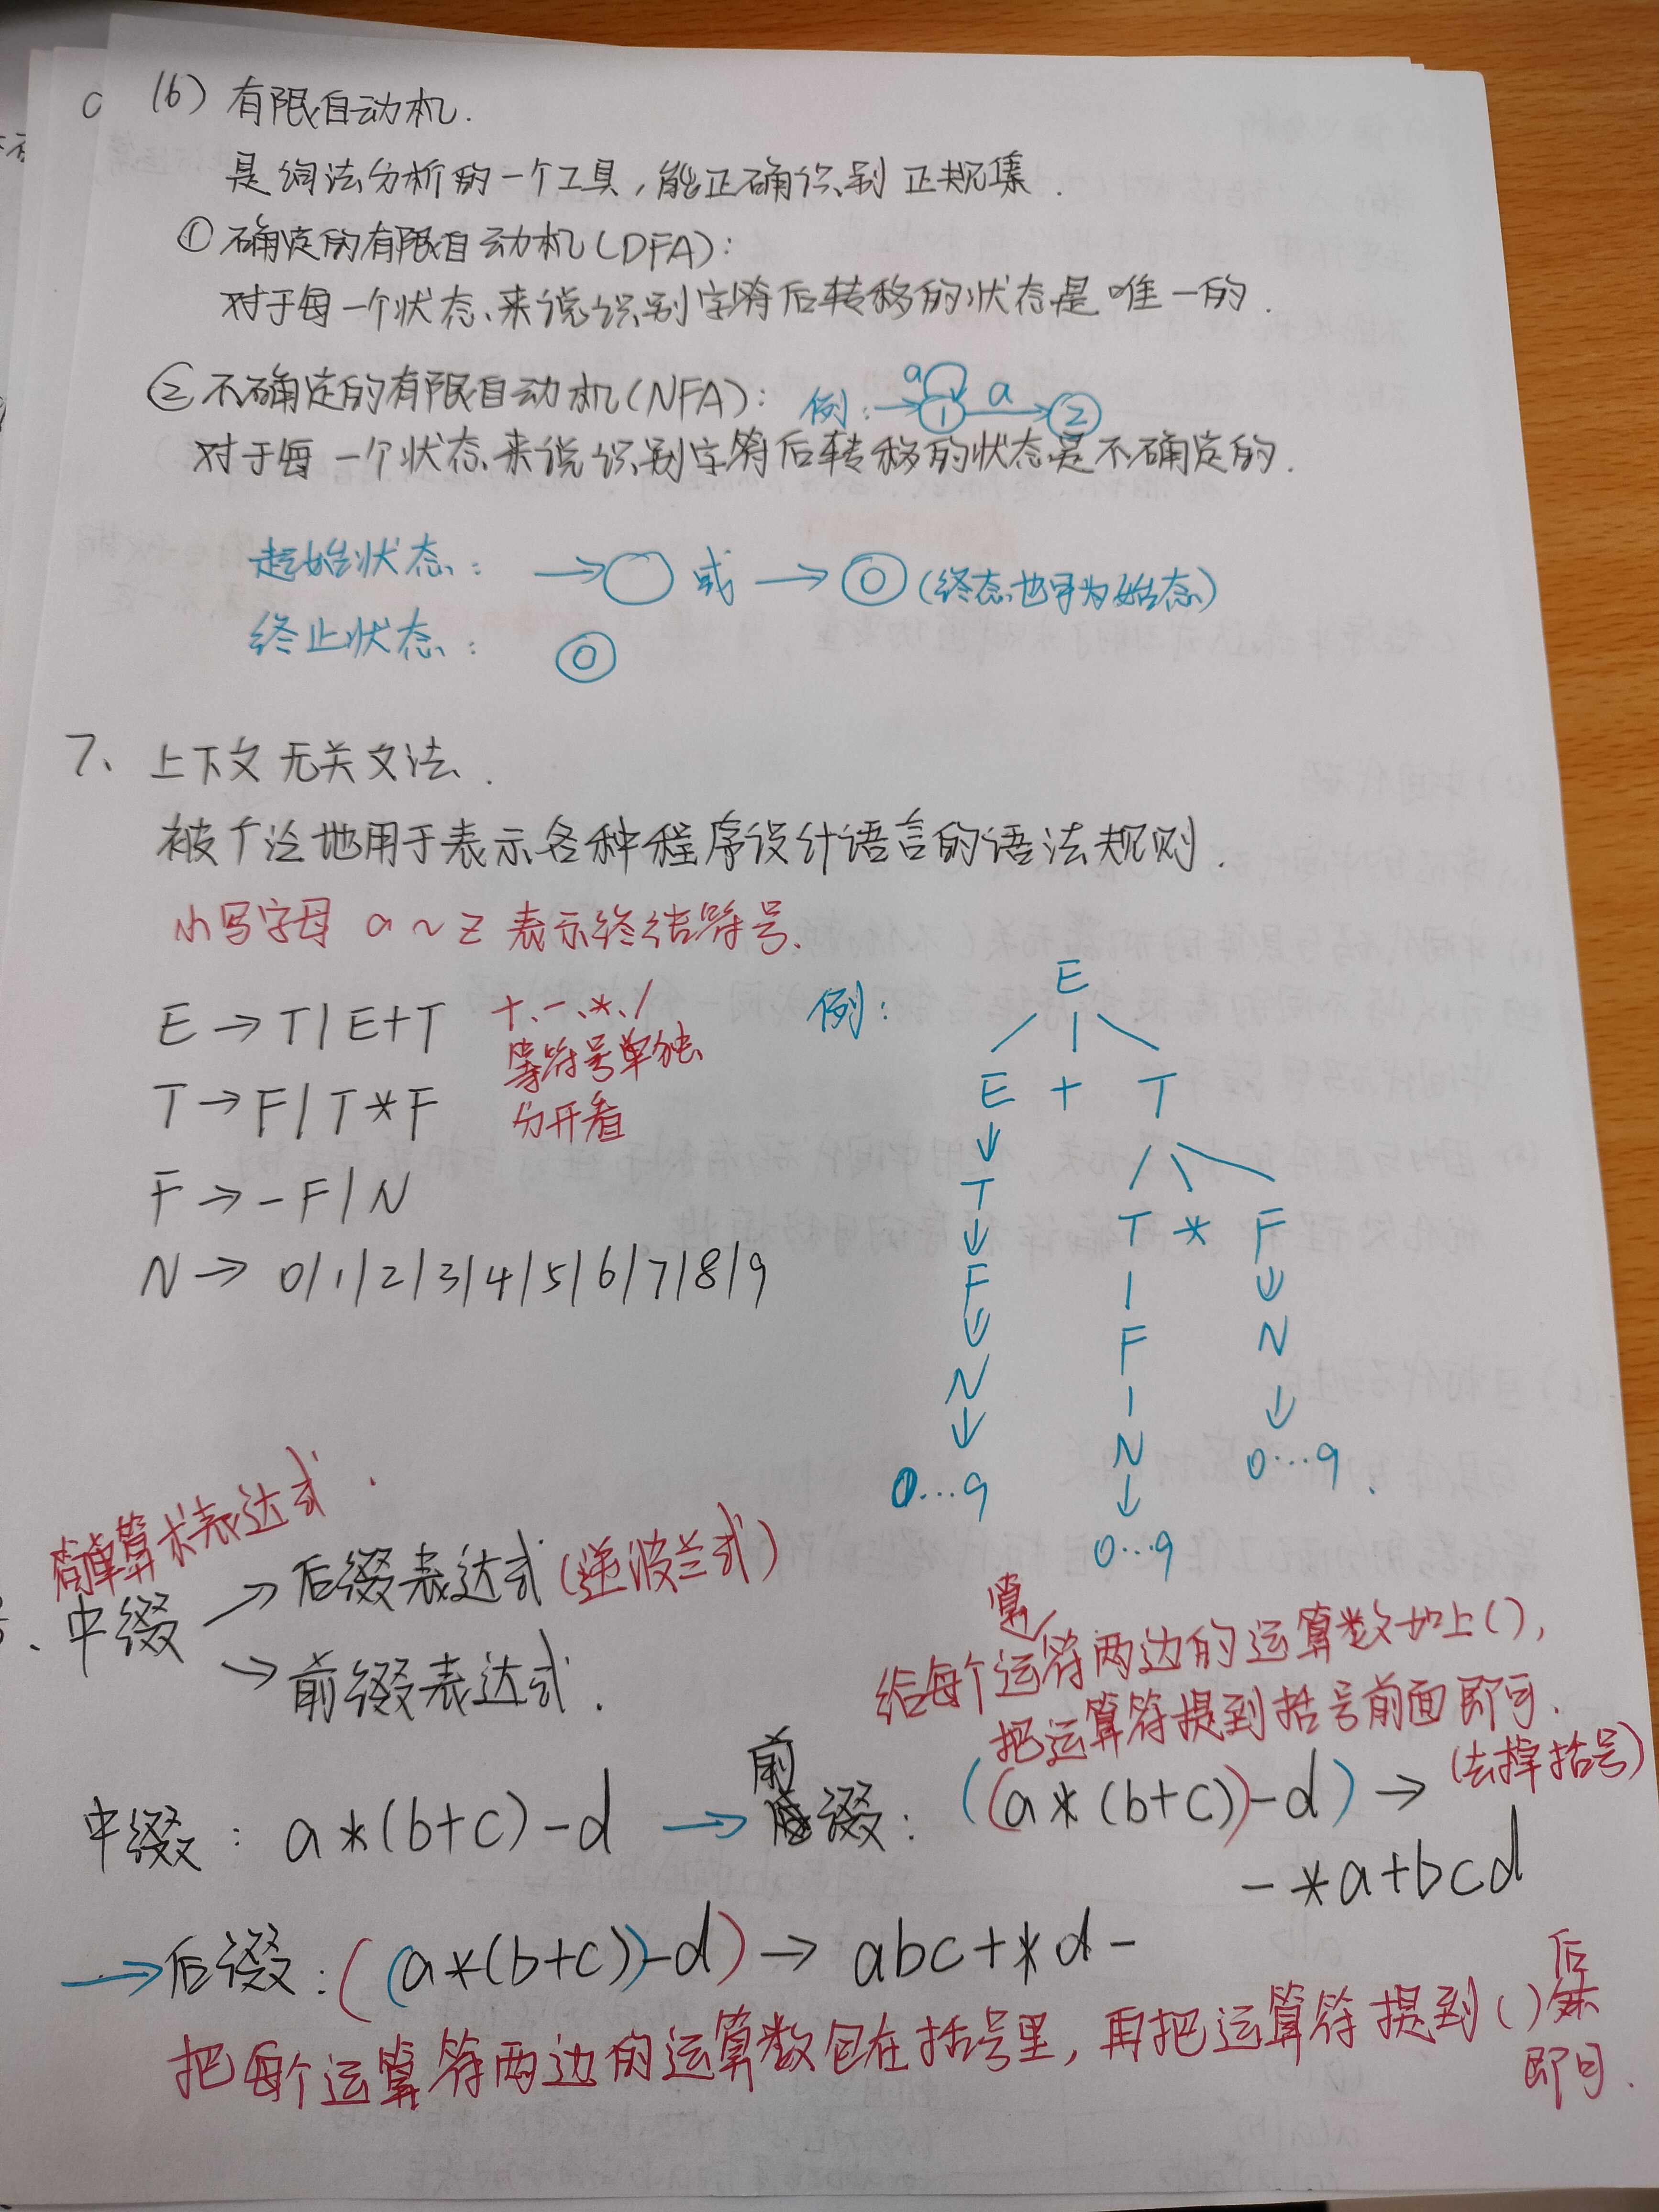 (6) 有限自动机.
是词法分析的一个工具,能正确识别正规集.
① 确定的有限自动机(DFA):
对于每一个状态来说识别字符后转移的状态是唯一的.
② 不确定的有限自动机(NFA): 例: → 1 a a 2
对于每一个状态来说识别字符后转移的状态是不确定的.
起始状态: → ○ 或 → ◎ (终态也可为始态)
终止状态: ◎
7、上下文无关文法.
被广泛地用于表示各种程序设计语言的语法规则.
小写字母 a~z 表示终结符号.
E → T | E+T
T → F | T*F
F → -F | N
N → 0|1|2|3|4|5|6|7|8|9
+、-、*、/
等符号单独
分开看
例:
E
E + T
↓
T T * F
↓ | ↓
F F N
↓ | ↓
N N 0...9.
↓ ↓
0...9 0...9
简单算术表达式.
中缀 → 后缀表达式(逆波兰式)
→ 前缀表达式.
给每个运算符两边的运算数加上(),
把运算符提到括号前面即可.
(去掉括号)
中缀: a*(b+c)-d → 前缀: ((a*(b+c))-d) →
-*a+bcd
→ 后缀: ((a*(b+c))-d) → abc+*d-
把每个运算符两边的运算数包在括号里,再把运算符提到()后
即可.